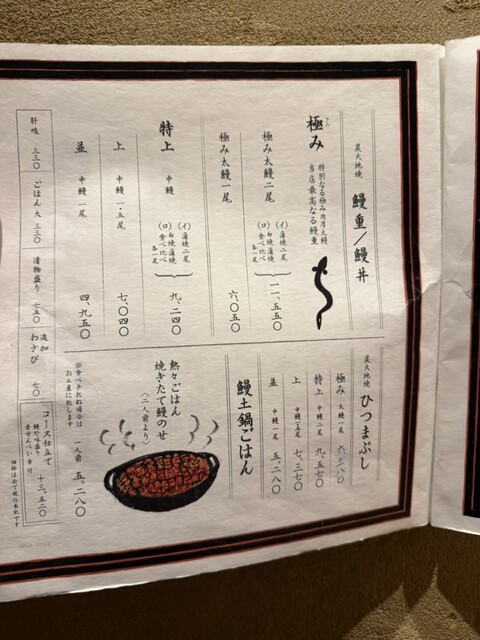 炭火地焼
鰻重／鰻丼
極み
きわみ
特別なる極み肉厚太鰻
当店最高なる鰻重
極み太鰻二尾
（イ）蒲焼二尾
（ロ）白焼蒲焼
食べ比べ
各一尾
一一、五五〇
極み太鰻一尾
六、〇五〇
特上
中鰻
（イ）蒲焼二尾
（ロ）白焼蒲焼
食べ比べ
各一尾
九、二四〇
上
中鰻
一・五尾
七、〇四〇
並
中鰻
一尾
四、九五〇
炭火地焼
ひつまぶし
極み
太鰻一尾
六、三八〇
特上
中鰻二尾
九、五七〇
上
中鰻一・五尾
七、三七〇
並
中鰻一尾
五、二八〇
鰻土鍋ごはん
熱々ごはん
焼きたて鰻のせ
（二人前より）
一人前
五、二八〇
※食べきれぬ場合は
お土産に致します
肝吸
三三〇
ごはん大
三三〇
漬物盛り
七五〇
追加
わさび
七〇
コース仕立て
十三、五二〇
価格は全て税込表記です